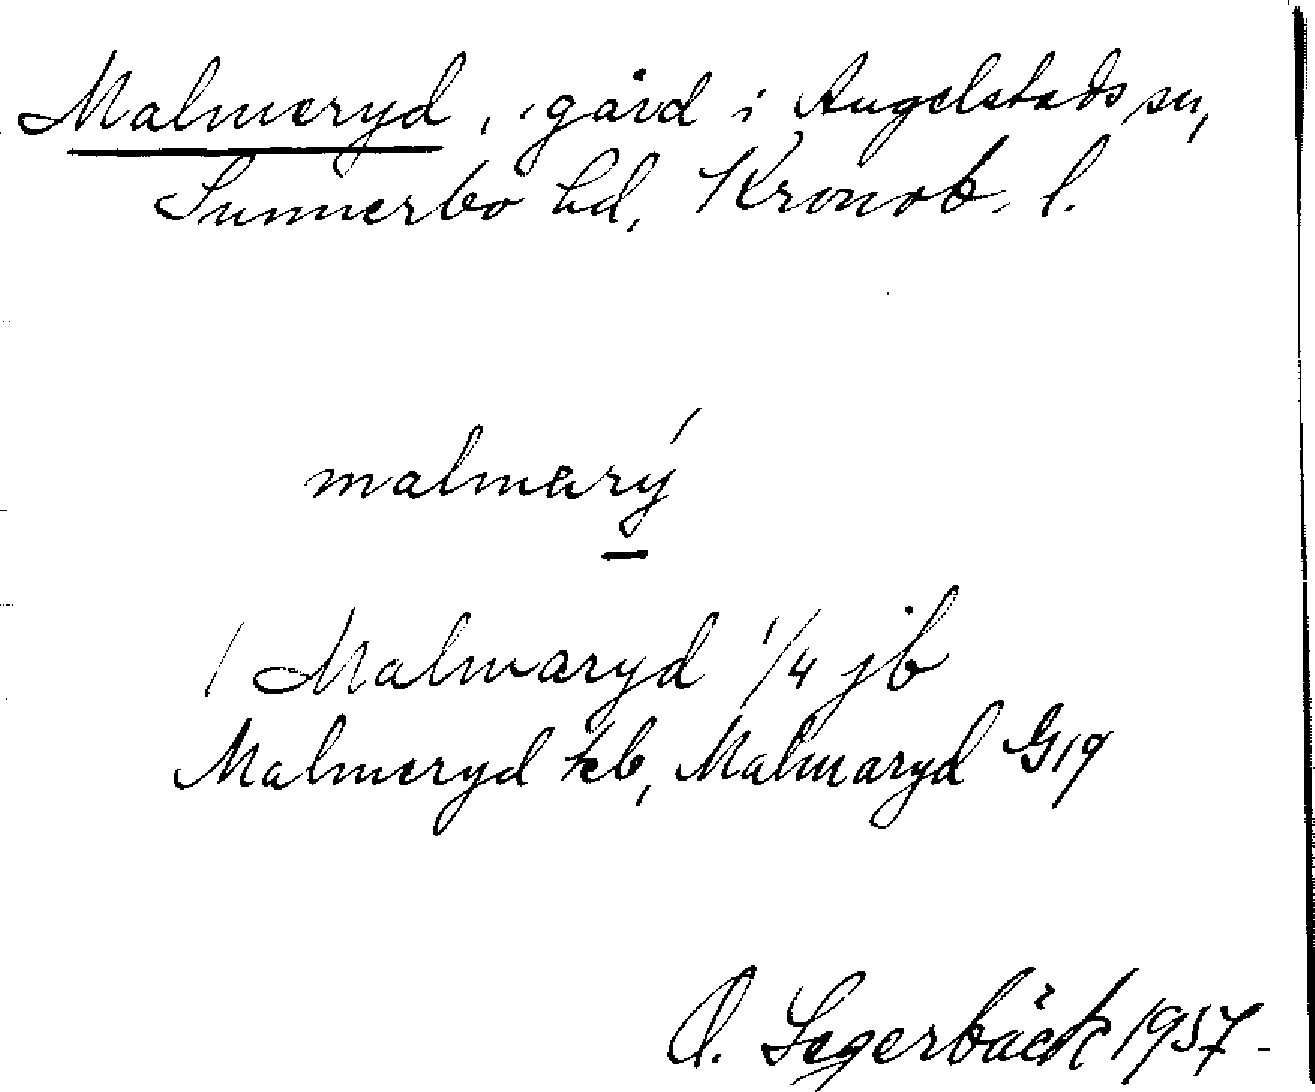 Malmeryd, gård i Angelstads sn,
Sunnerbo hd, Kronob. l.
malmarý
1 Malmaryd 1/4 jb
Malmeryd kb, Malmaryd G19
O. Segerbäck 1957.